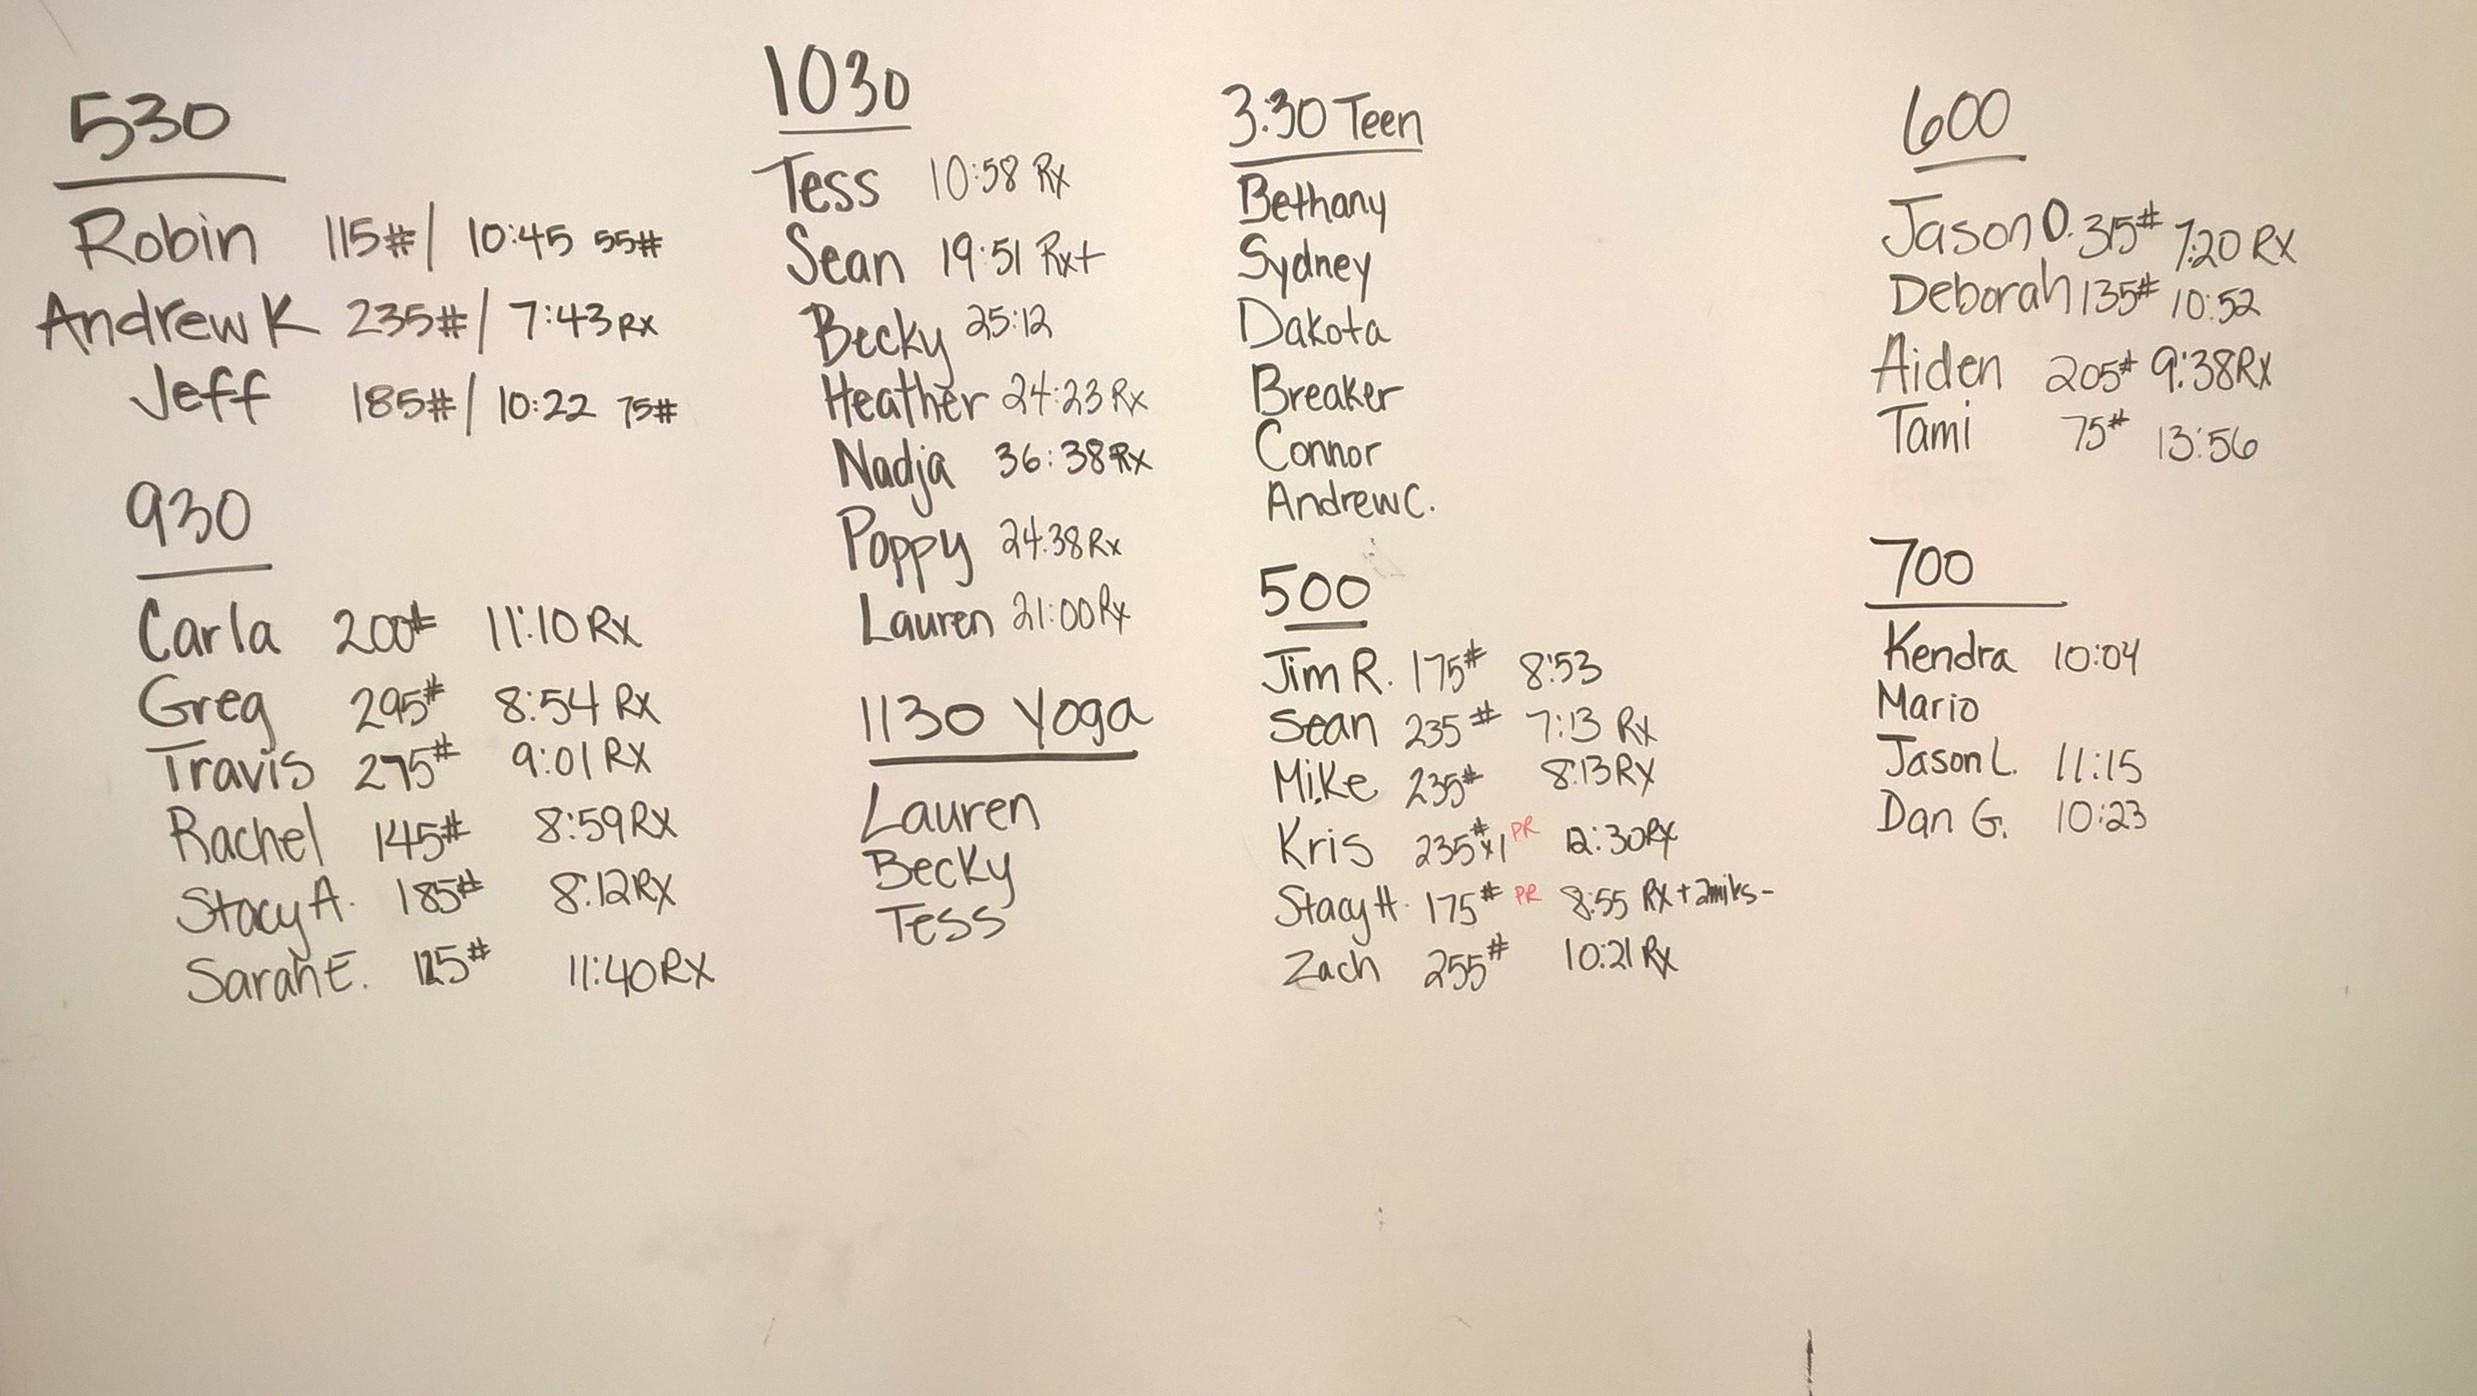 530
Robin 115#/ 10:45 55#
Andrew K 235#/ 7:43 RX
Jeff 185#/ 10:22 75#
930
Carla 200# 11:10 RX
Greg 295# 8:54 RX
Travis 275# 9:01 RX
Rachel 145# 8:59 RX
Stacy A. 185# 8:12 RX
Sarah E. 125# 11:40 RX
1030
Tess 10:58 Rx
Sean 19:51 Rx+
Becky 25:12
Heather 24:23 Rx
Nadja 36:38 Rx
Poppy 24:38 Rx
Lauren 21:00 Rx
1130 Yoga
Lauren
Becky
Tess
3:30 Teen
Bethany
Sydney
Dakota
Breaker
Connor
Andrew C.
500
Jim R. 175# 8:53
Sean 235# 7:13 Rx
Mike 235# 8:13 RX
Kris 235#x1 PR 12:30 RX
Stacy H. 175# PR 8:55 RX +
Zach 255# 10:21 Rx
600
Jason O. 315# 7:20 RX
Deborah 135# 10:52
Aiden 205# 9:38 RX
Tami 75# 13:56
700
Kendra 10:04
Mario
Jason L. 11:15
Dan G. 10:23